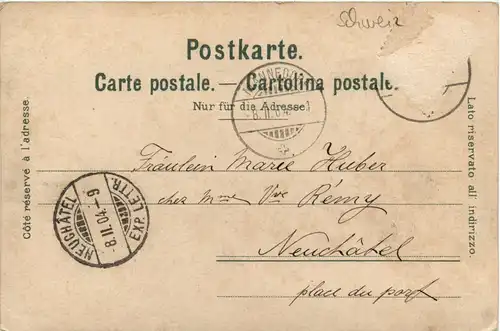 Schweiz
Postkarte.
Carte postale. — Cartolina postale.
Nur für die Adresse.
Côté réservé à l'adresse.
Lato riservato all' indirizzo.
8.II.04
Fräulein Marie Huber
chez Mme Vve Rémy
Neuchâtel
place du port
NEUCHÂTEL
8.II.04.–9
EXP. LETTR.